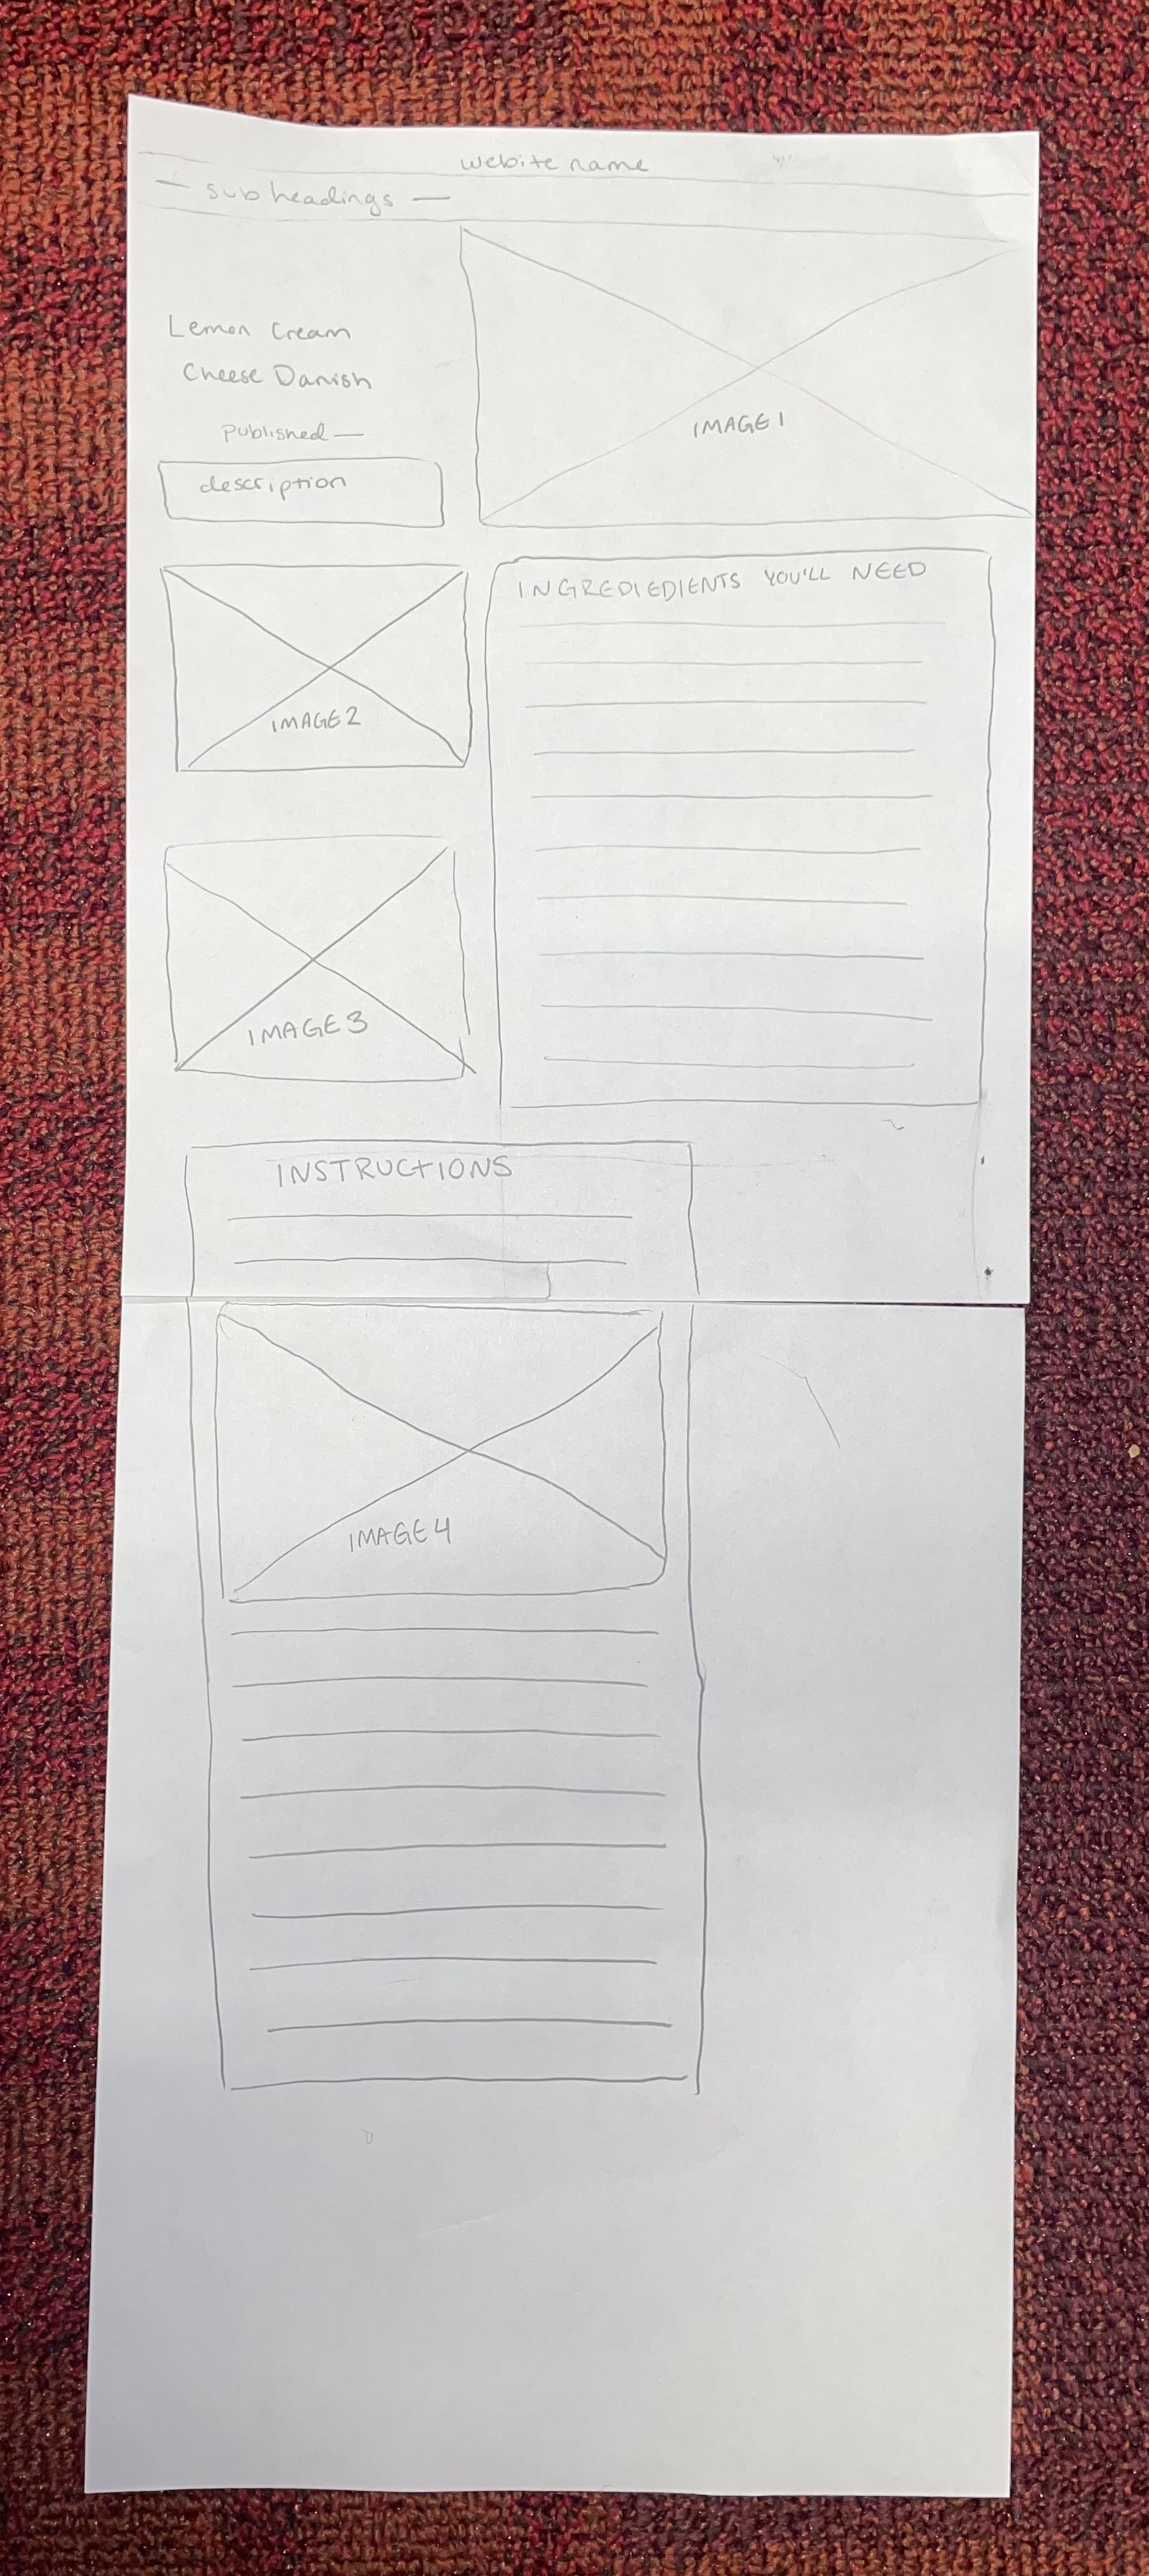 webite name
— subheadings —
Lemon Cream
Cheese Danish
Published —
description
IMAGE 1
IMAGE 2
INGREDIEDIENTS YOU'LL NEED
IMAGE 3
INSTRUCTIONS
IMAGE 4